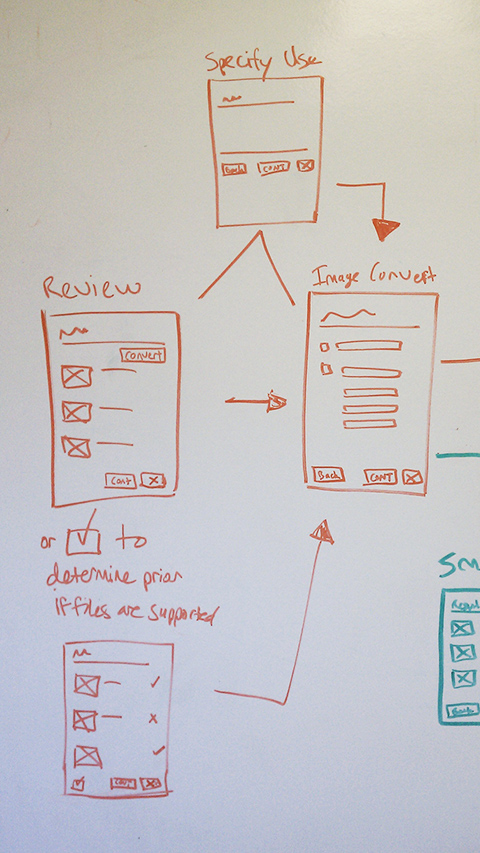 Specify Use
Back CONT X
Review
Convert
Cont X
Image Convert
Back CONT X
or ✓ to
determine prior
if files are supported
✓
x
✓
✓ CONT X
Sm
Back